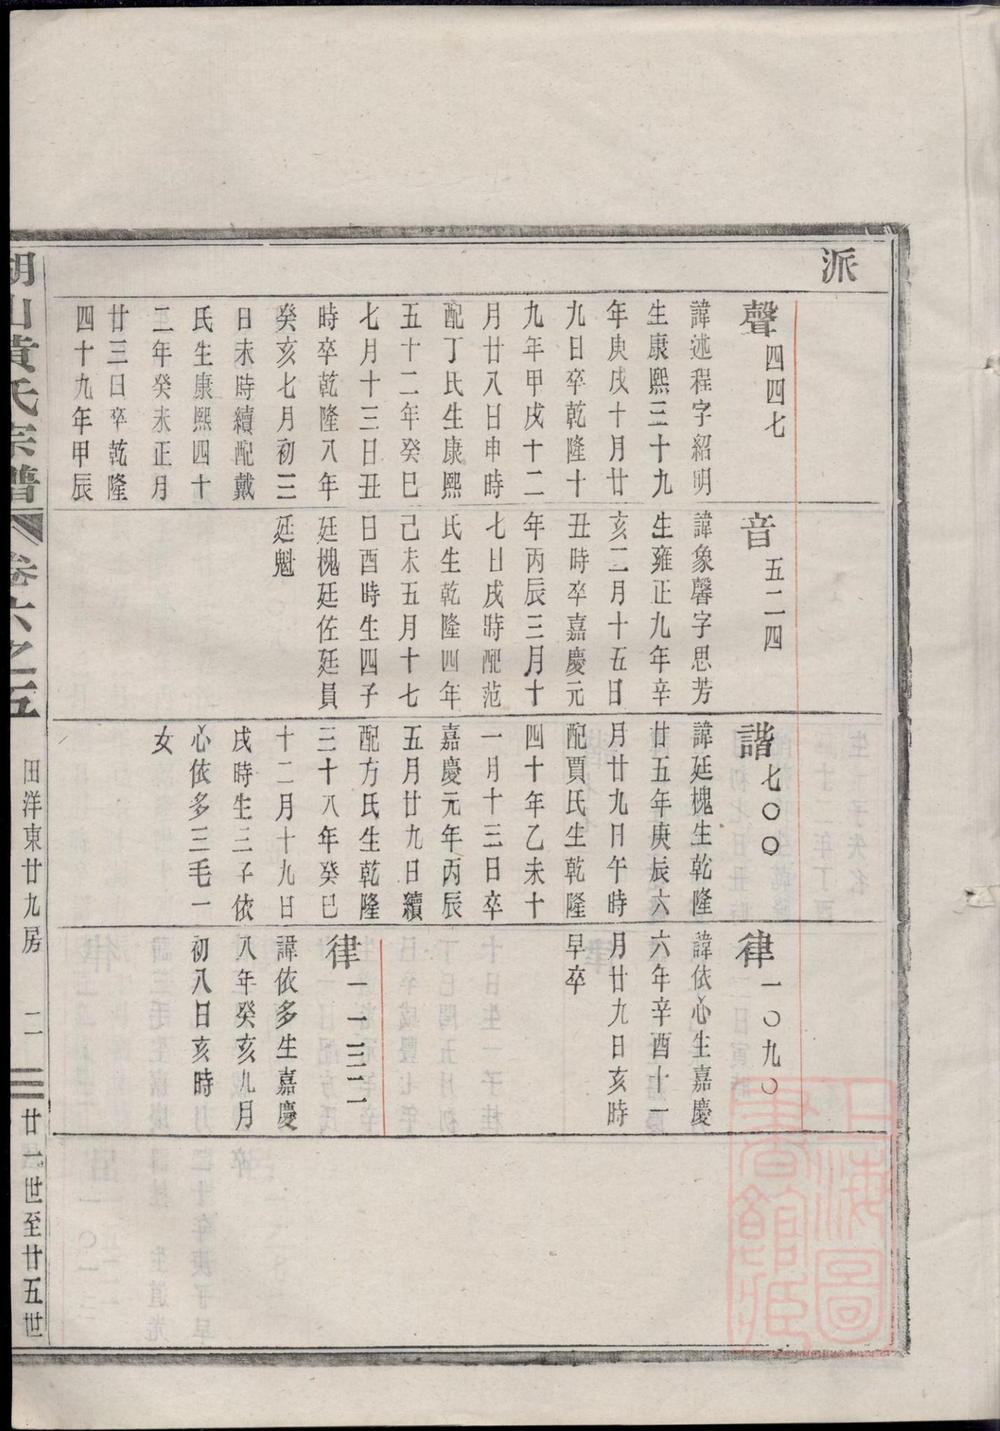 派
聲四四七
諱述程字紹明
生康熙三十九
年庚戌十月廿
九日卒乾隆十
九年甲戌十二
月廿八日申時
配丁氏生康熙
五十二年癸巳
七月十三日丑
時卒乾隆八年
癸亥七月初三
日未時續配戴
氏生康熙四十
二年癸未正月
廿三日卒乾隆
四十九年甲辰
音五二四
諱象馨字思芳
生雍正九年辛
亥二月十五日
丑時卒嘉慶元
年丙辰三月十
七日戌時配范
氏生乾隆四年
己未五月十七
日酉時生四子
廷槐廷佐廷員
廷魁
諧七〇〇
諱廷槐生乾隆
廿五年庚辰六
月廿九日午時
配賈氏生乾隆
四十年乙未十
一月十三日卒
嘉慶元年丙辰
五月廿九日續
配方氏生乾隆
三十八年癸巳
十二月十九日
戌時生三子依
心依多三毛一
女
律一〇九〇
諱依心生嘉慶
六年辛酉十一
月廿九日亥時
早卒
律一一三二
諱依多生嘉慶
八年癸亥九月
初八日亥時
胡山黃氏宗譜 卷六之五 田洋東廿九房 二 廿一世至廿五世
上海圖
書館藏